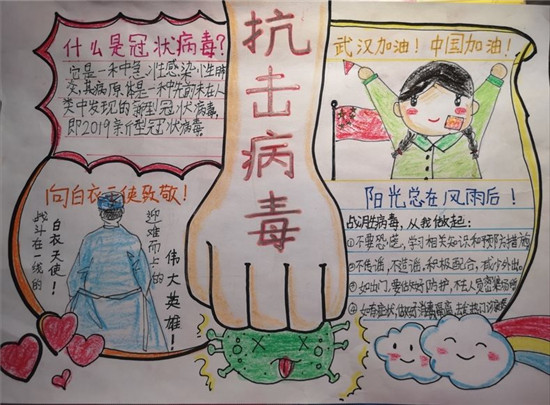 什么是冠状病毒?
它是一种急性感染性肺
炎,其病原体是一种先前未在人
类中发现的新型冠状病毒,
即2019新型冠状病毒
抗击病毒
武汉加油!中国加油!
向白衣天使致敬!
白衣天使!
战斗在一线的
迎难而上的
伟大英雄!
阳光总在风雨后!
战胜病毒,从我做起:
①不要恐慌,学习相关知识和预防措施
②不传谣,不造谣,积极配合,减少外出。
③如出门,要做好防护,不去人员密集场所
④如有症状,做好